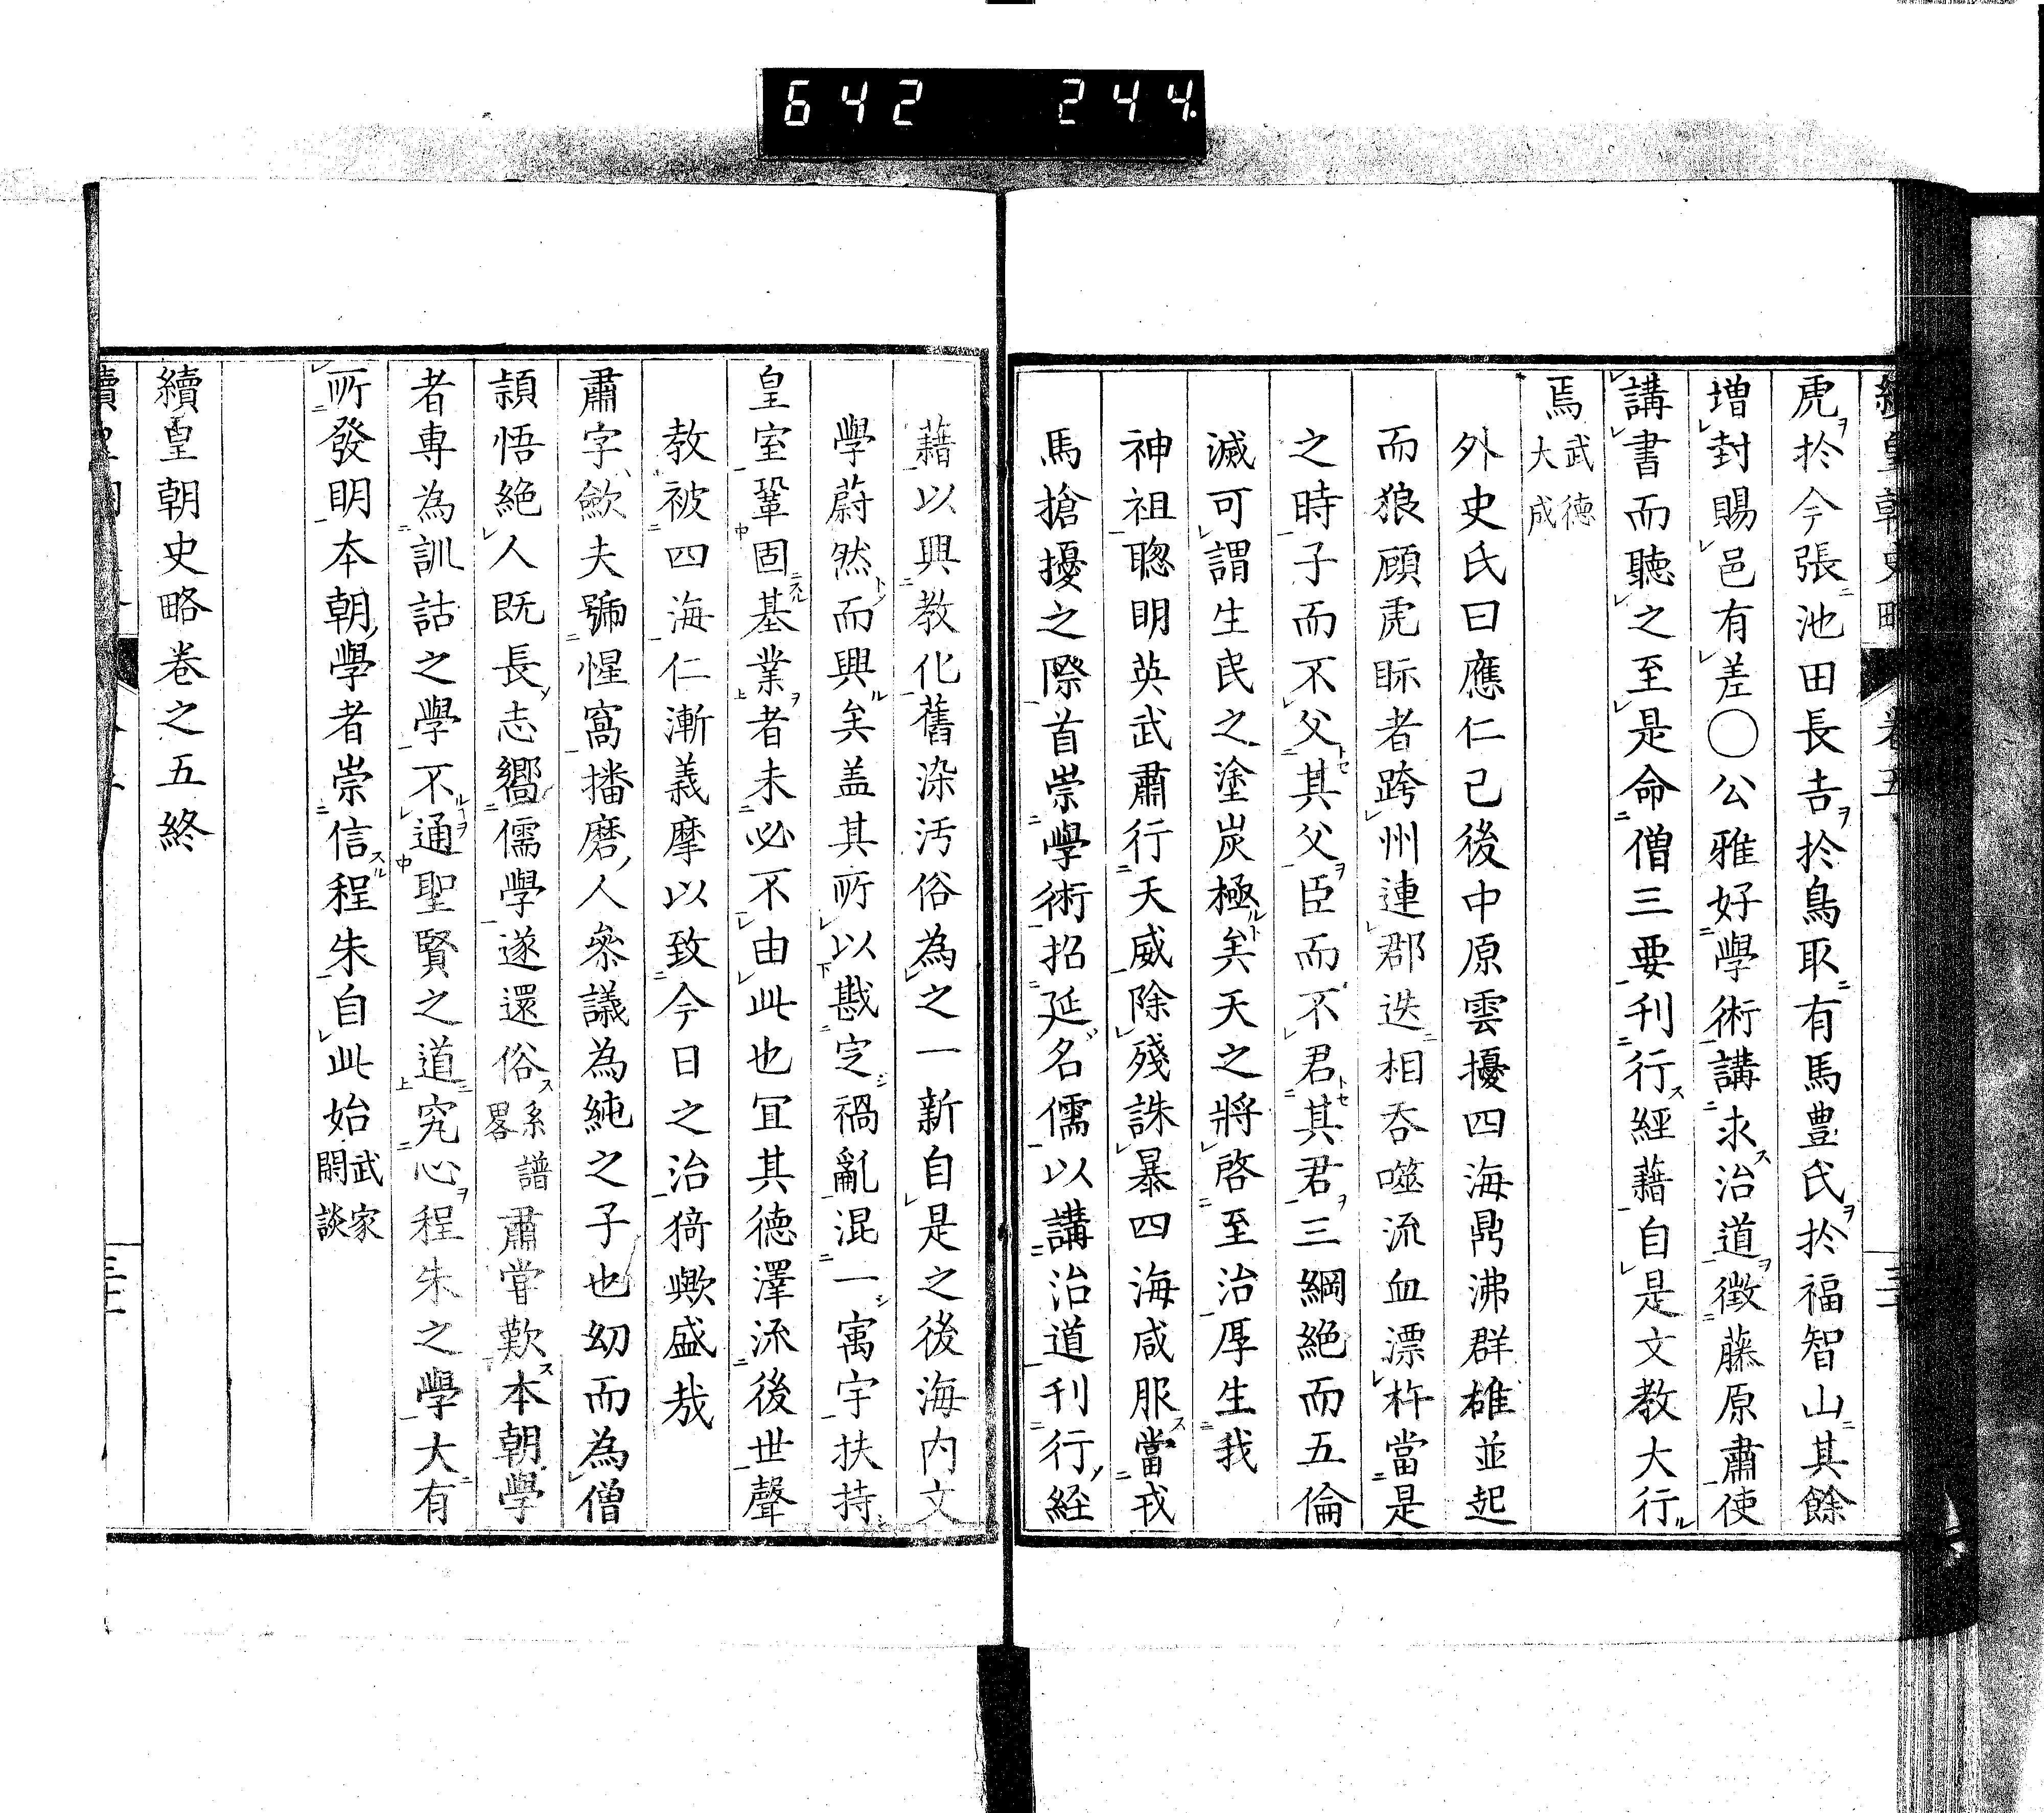 642 244
續皇朝史略 卷五
虎於今張池田長吉於鳥取有馬豊氏於福智山其餘
増封賜邑有差〇公雅好學術講求治道徴藤原肅使
講書而聽之至是命僧三要刊行經藉自是文教大行
焉武德大成
外史氏曰應仁已後中原雲擾四海鼎沸群雄並起
而狼顧虎眎者跨州連郡迭相呑噬流血漂杵當是
之時子而不父其父臣而不君其君三綱絶而五倫
滅可謂生民之塗炭極矣天之將啓至治厚生我
神祖聰明英武肅行天威除殘誅暴四海咸服當戎
馬搶擾之際首崇學術招延名儒以講治道刊行經
藉以興教化舊染汚俗為之一新自是之後海内文
學蔚然而興矣盖其所以戡定禍亂混一寓宇扶持
皇室鞏固基業者未必不由此也冝其德澤流後世聲
教被四海仁漸義摩以致今日之治猗歟盛哉
肅字歛夫號惺窩播磨人叅議為純之子也幼而為僧
頴悟絶人既長志嚮儒學遂還俗系譜畧肅甞歎本朝學
者專為訓詁之學不通聖賢之道究心程朱之學大有
所發明本朝學者崇信程朱自此始武家閑談
續皇朝史略卷之五終